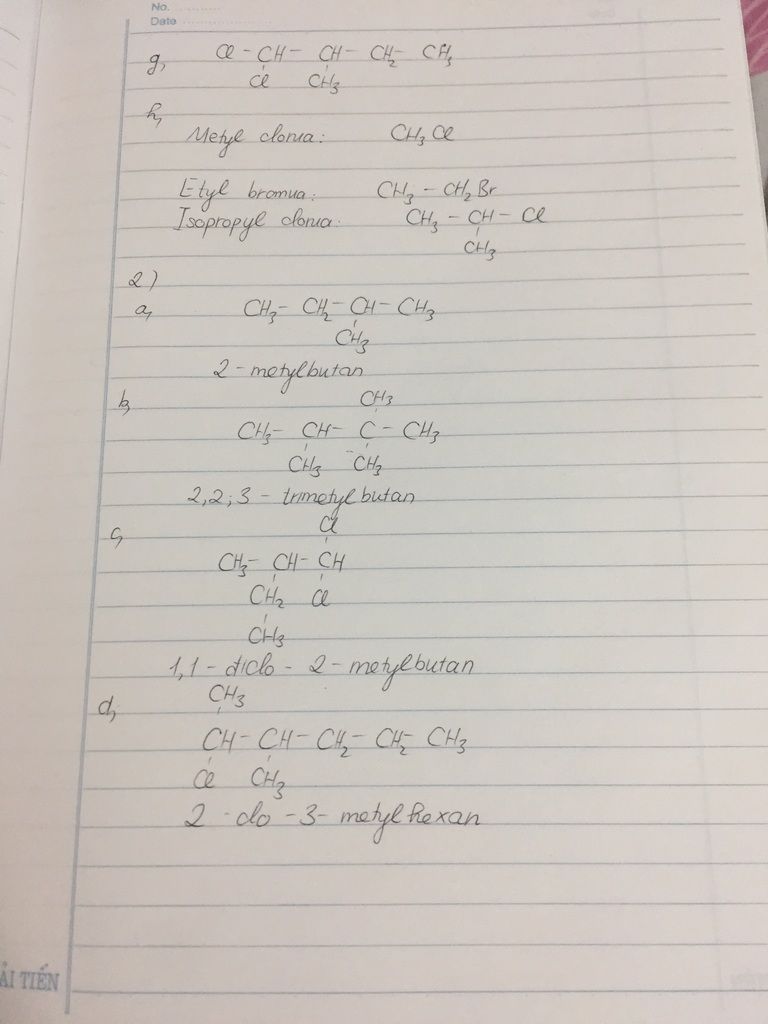 No. ............
Date ........................
g, Cl - CH - CH - CH2 - CH3
Cl CH3
h,
Metyl clorua: CH3Cl
Etyl bromua: CH3 - CH2Br
Isopropyl clorua: CH3 - CH - Cl
CH3
2)
a, CH3 - CH2 - CH - CH3
CH3
2 - metylbutan
b, CH3
CH3 - CH - C - CH3
CH3 CH3
2,2,3 - trimetylbutan
c, Cl
CH3 - CH - CH
CH2 Cl
CH3
1,1 - điclo - 2 - metylbutan
d, CH3
CH - CH - CH2 - CH2 - CH3
Cl CH3
2 - clo - 3 - metylhexan
ẢI TIẾN